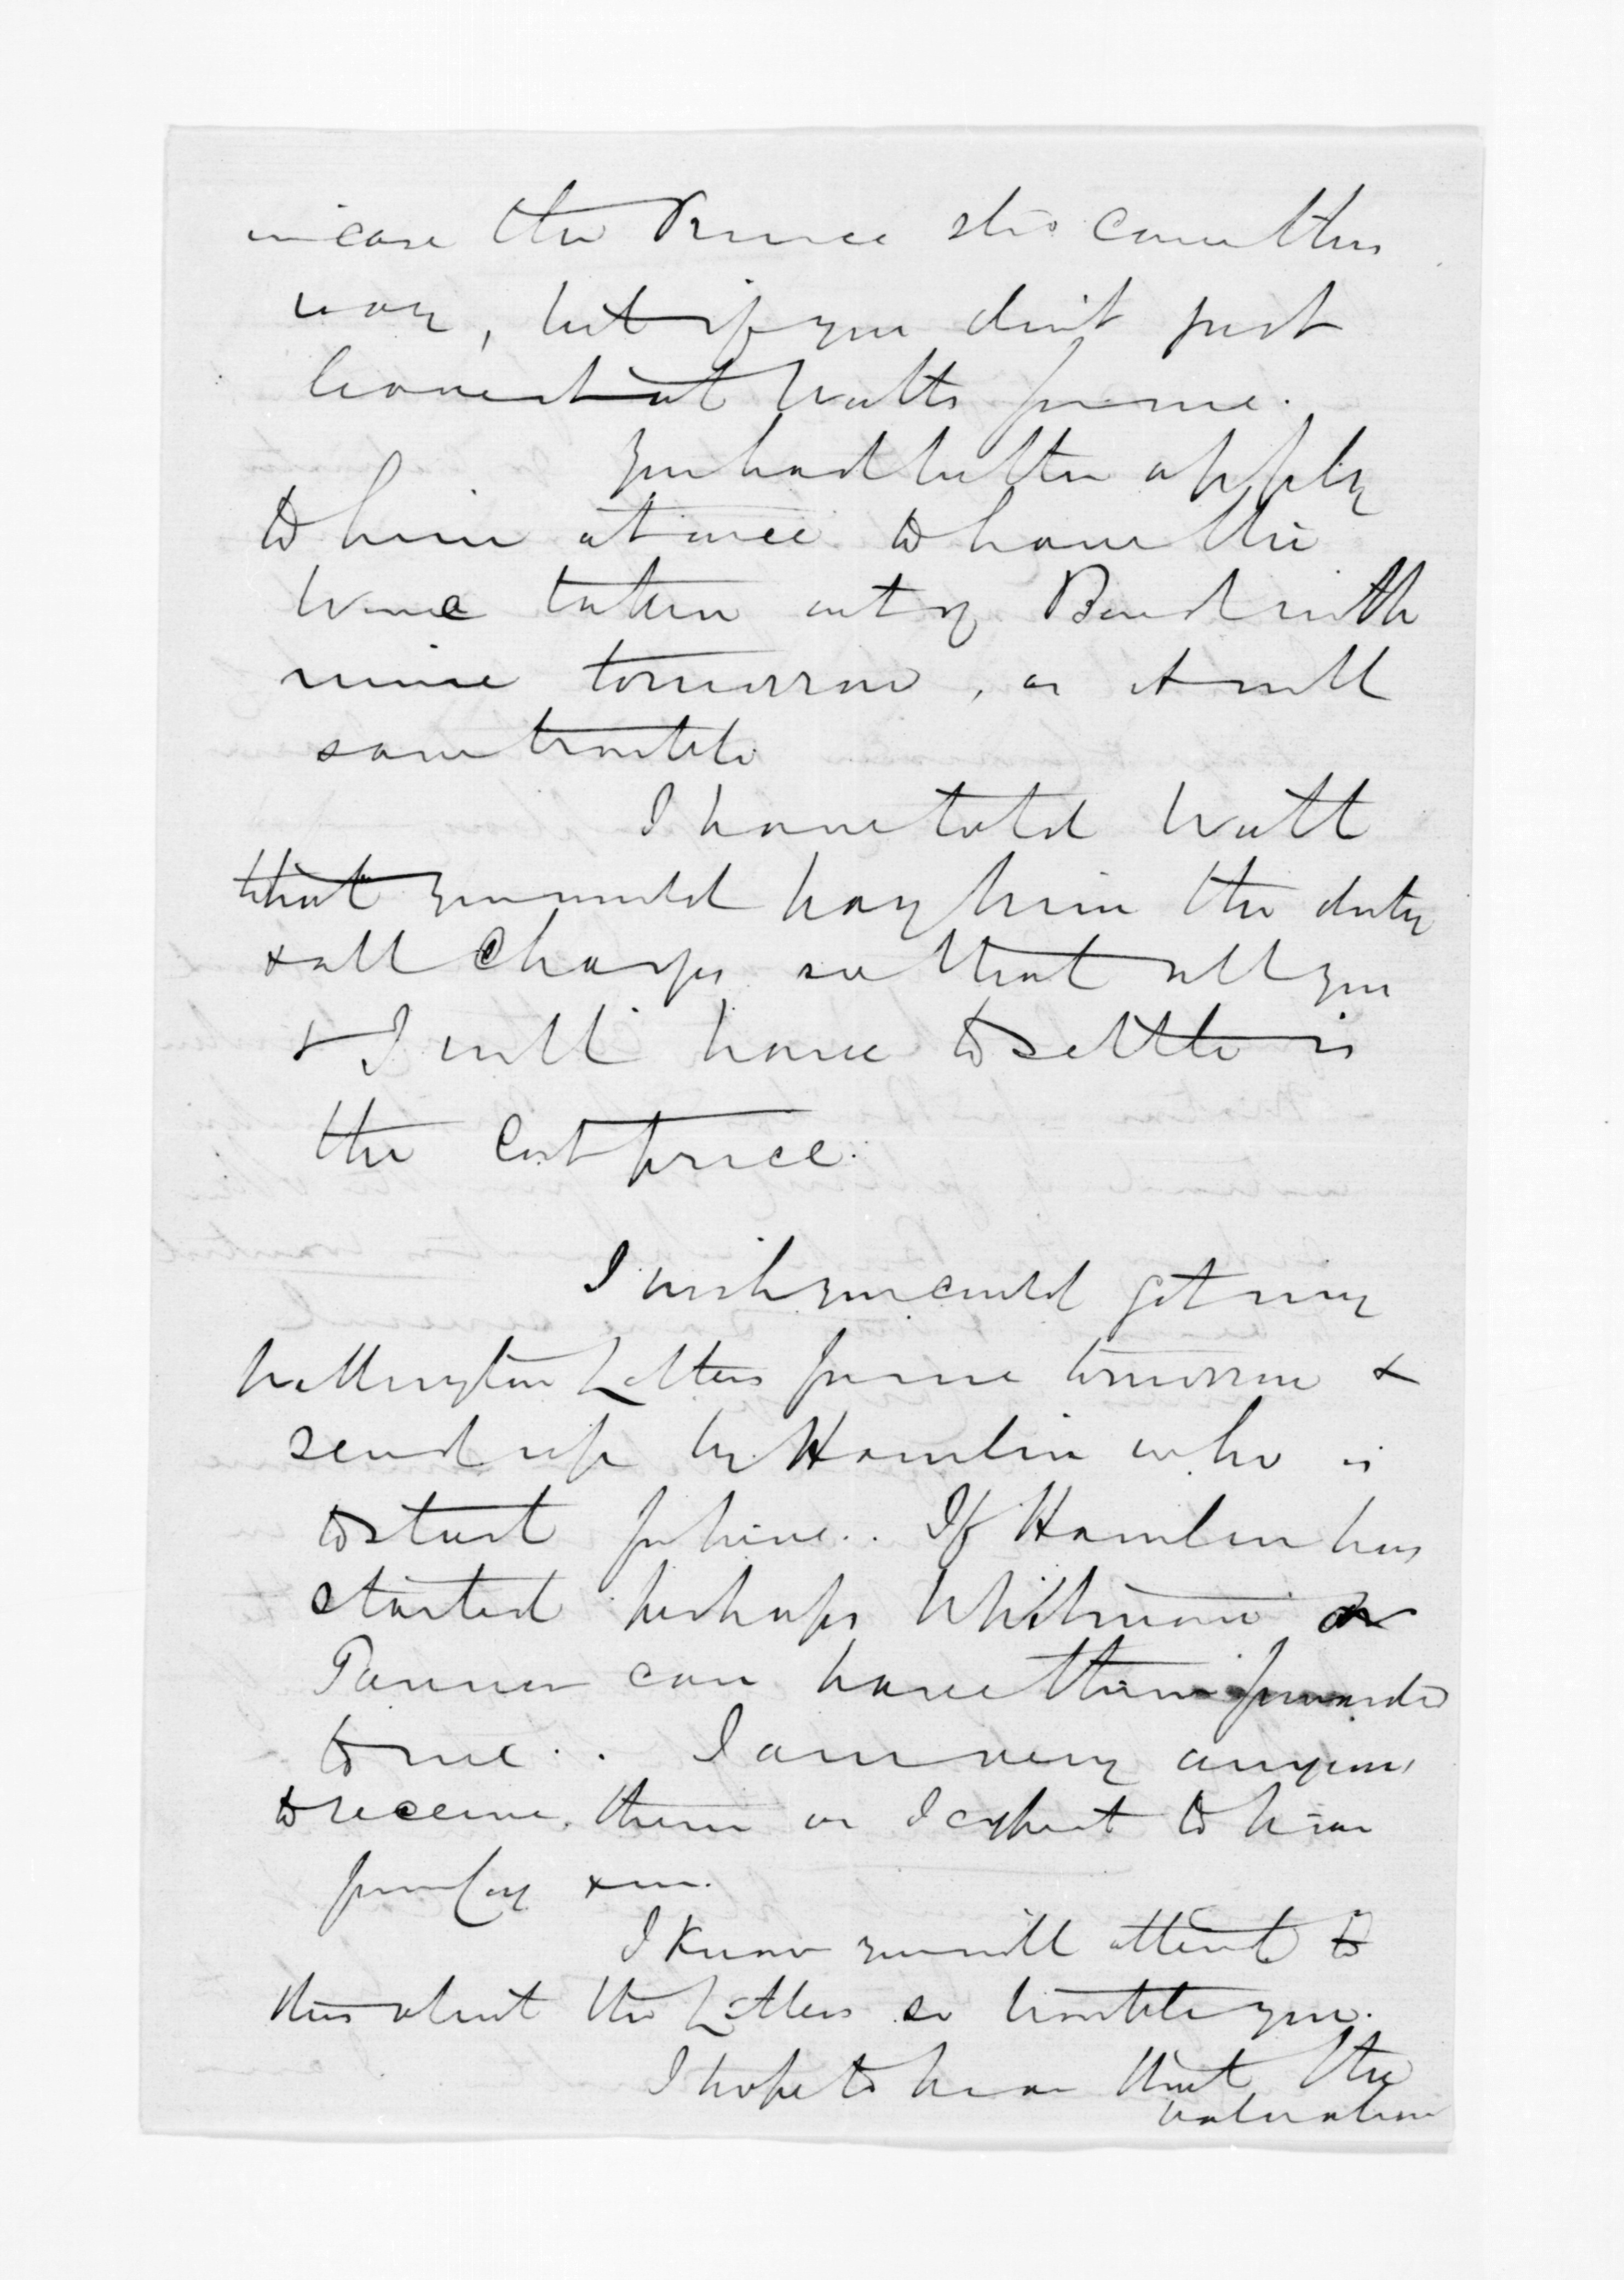 in case the Prince shd come this
way, but if you don't just
leave it at Watts for me.
You had better apply
to him at once to have the
Wine taken out of Bond with
mine tomorrow, as it will
save trouble
I have told Watt
that you would pay him the duty
& all Charges so that all you
& I will have to settle is
the Cost price.
I wish you could get my
Wellington Letters for me tomorrow &
send up by Hamlin who is
to start for here.. If Hamlin has
started perhaps Whitmore or
Tanner can have them forwarded
to me.. I am very anxious
to receive them as I expect to hear
from Coy
I know you will attend to
this about the Letters so trouble you.
I hope to hear that the
valuation